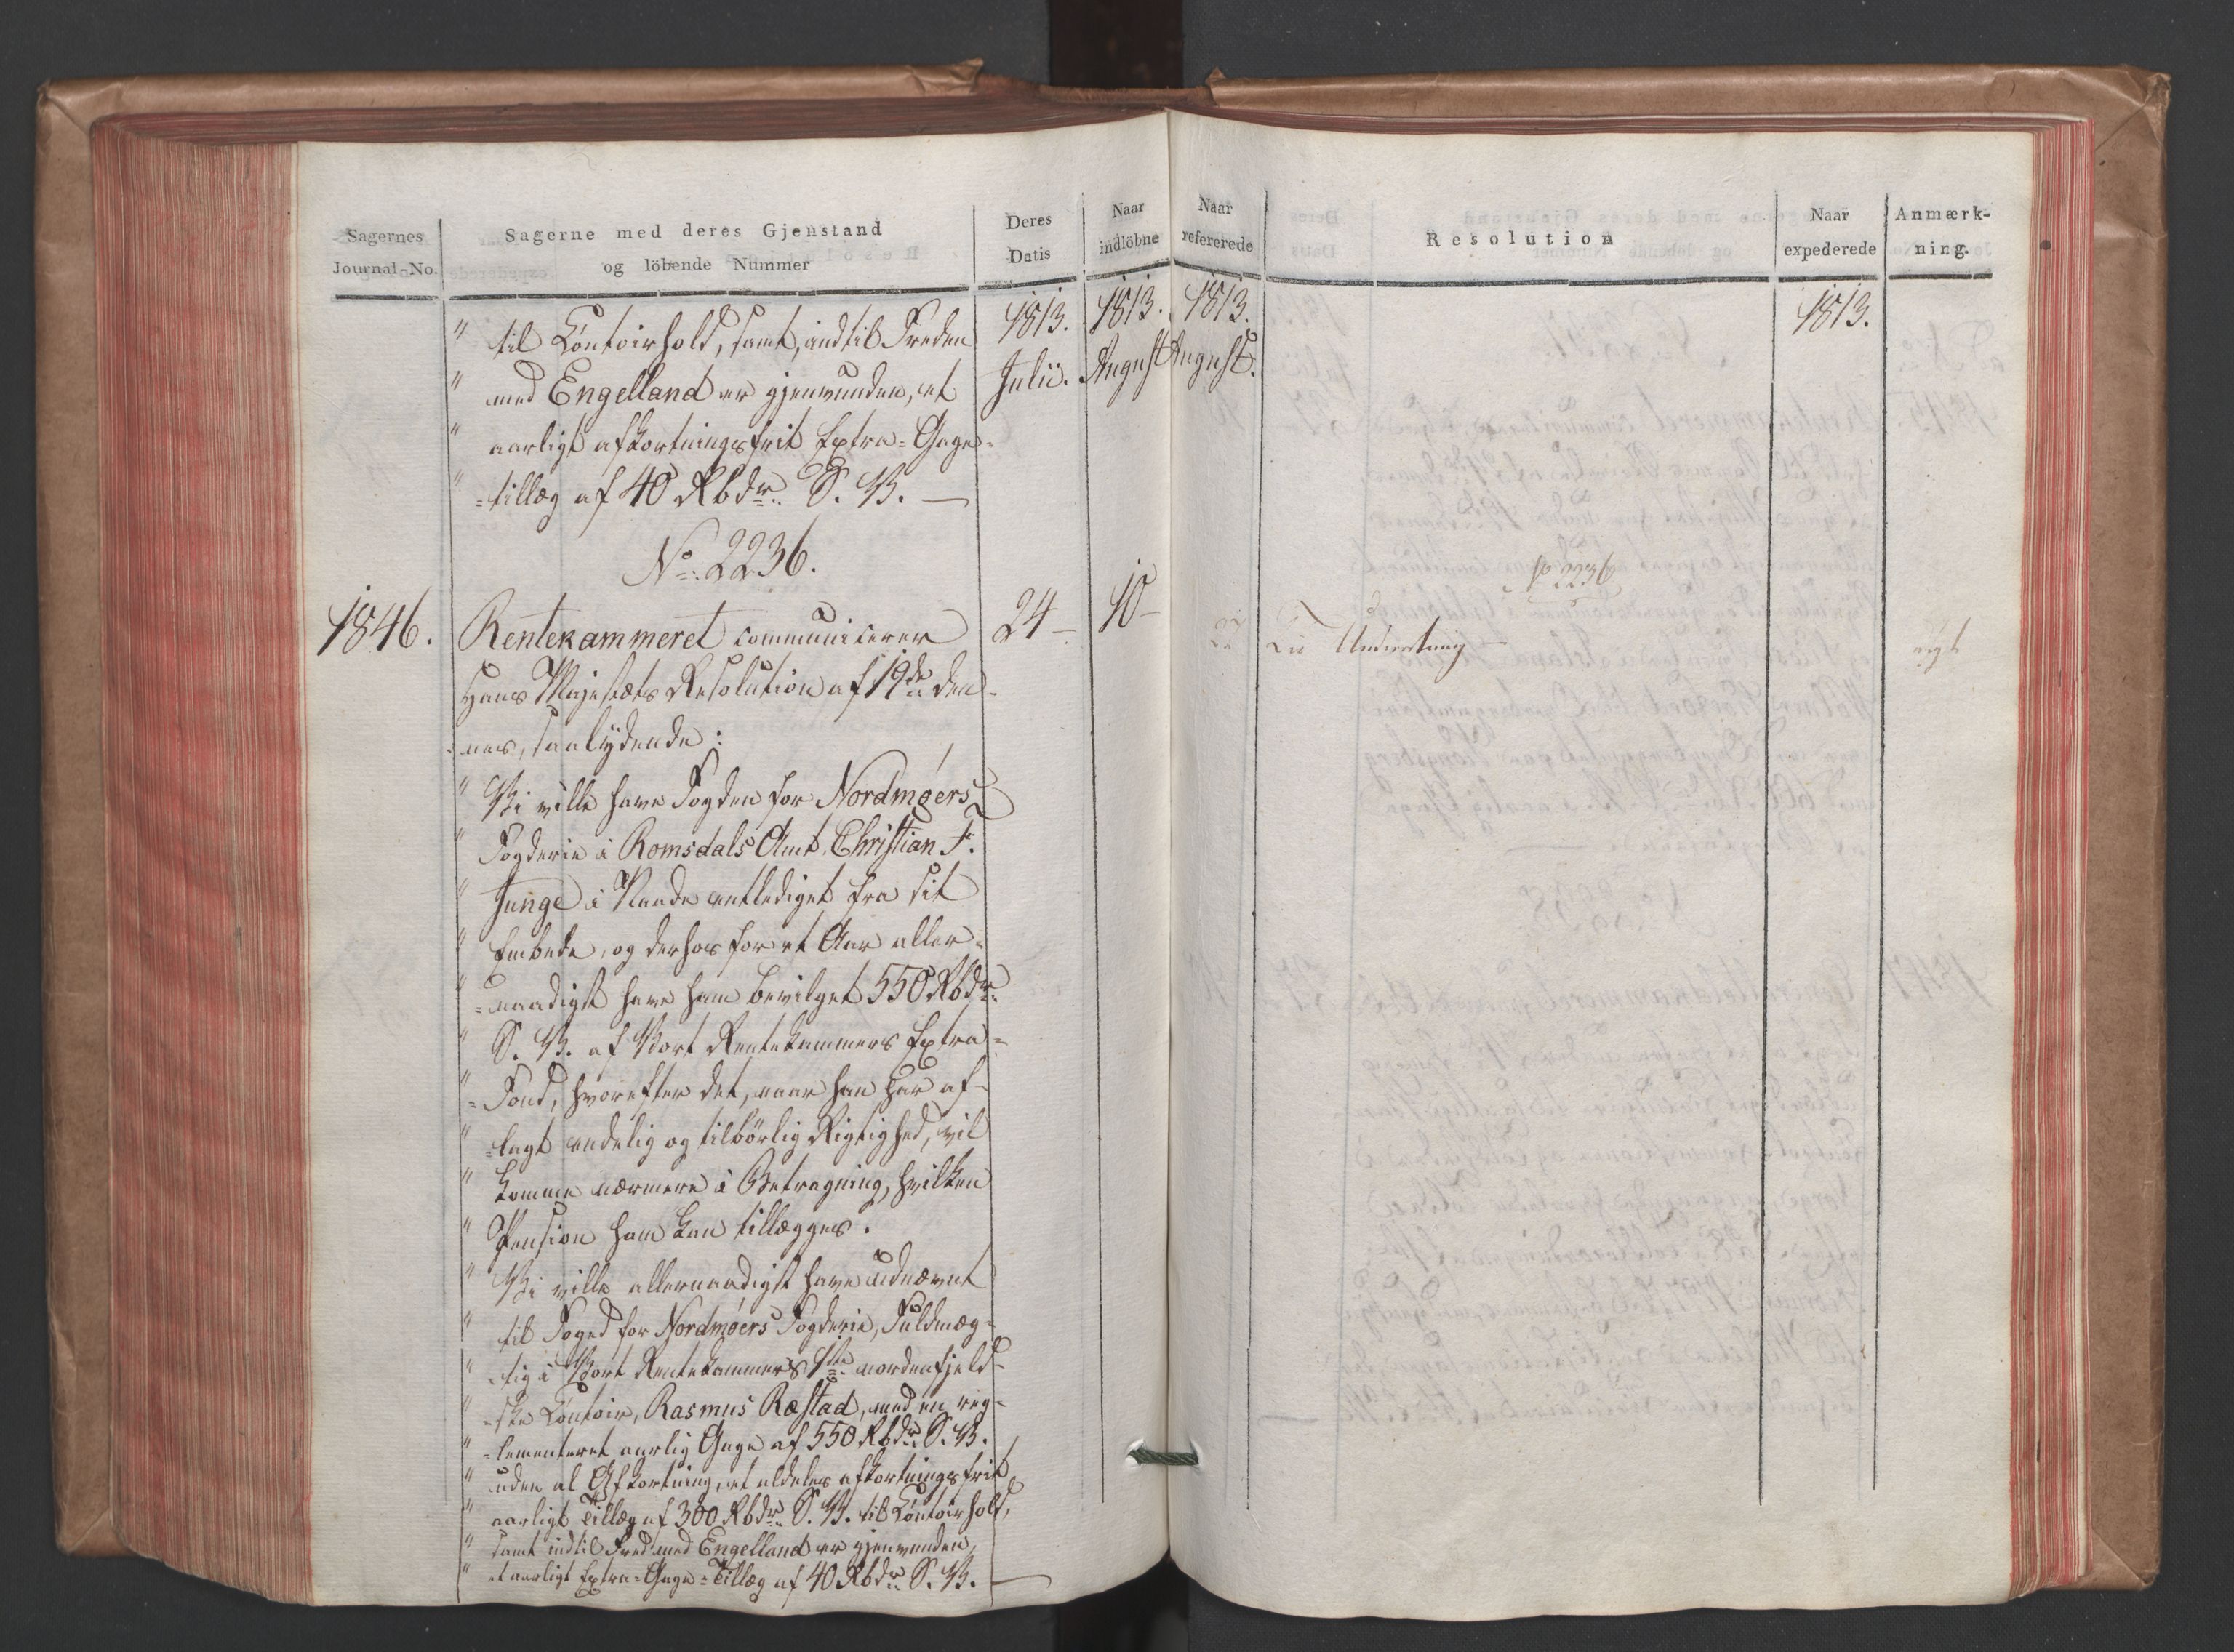 Sagernes
Journal-No.
Sagerne med deres Gjenstand
og löbende Nummer
Deres
Datis
Naar
indlöbne
Naar
refererede
Resolution
Naar
expederede
Anmærk-
ning.
1813. 1813. 1813. 1813.
Julii. August August.
" til Contoirhold, samt, indtil Freden
" med Engelland er gjenvunden, et
" aarligt afkortningsfrit Extra-Gage-
" -tillæg af 40 Rbdr. S. V. —
No. 2236.
1846. Rentekammeret communicerer 24 — 10 —
Hans Majestæts Resolution af 19de den-
-nes, saalydende:
" Vi ville have Fogden for Nordmøers
" Fogderie i Romsdals Amt, Christian F.
" Junge i Naade entlediget fra sit
" Embede, og derhos for et Aar aller-
" -naadigst have ham bevilget 550 Rbdr.
" S. V. af Vort Rentekammers Extra-
" -Fond, hvorefter det, naar han har af-
" -lagt endelig og tilbörlig Rigtighed, vil
" komme nærmere i Betragtning, hvilken
" Pension ham kan tillægges.
" Vi ville allernaadigst have udnævnt
" til Foged for Nordmøers Fogderie, Fuldmæg-
" -tig i Vort Rentekammers 1ste nordenfjeld-
" -ske Contoir, Rasmus Ræstad, med en reg-
" -lementeret aarlig Gage af 550 Rbdr. S. V.
" uden al Afkortning, et aldeles afkortningsfrit
" aarligt Tillæg af 300 Rbdr. S. V. til Contoirhold,
" samt indtil Fred med Engelland er gjenvunden,
" et aarligt Extra-Gage-Tillæg af 40 Rbdr. S. V. —
No 2236
Til Underretning —